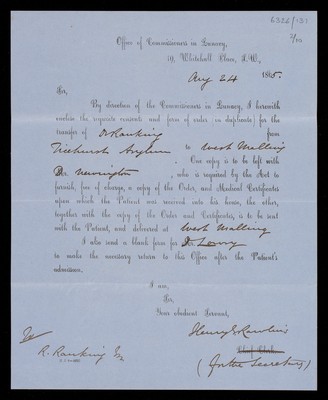 6326/(3)
2/10
Office of Commissioners in Lunacy,
19, Whitehall Place, S.W.,
Aug 24 1875.
Sir,
By direction of the Commissioners in Lunacy, I herewith
enclose the requisite consents and form of order (in duplicate) for the
transfer of Dr Ranking from
Ticehurst Asylum to West Malling
One copy is to be left with
Dr. Newington, who is required by the Act to
furnish, free of charge, a copy of the Order, and Medical Certificates
upon which the Patient was received into his house, the other,
together with the copy of the Order and Certificates, is to be sent
with the Patient, and delivered at West Malling
I also send a blank form for Dr Lowry
to make the necessary return to this Office after the Patient's
admission.
I am,
Sir,
Your obedient Servant,
Henry E Rawlins
Chief Clerk
(for the Secretary)
To
R. Ranking Esq